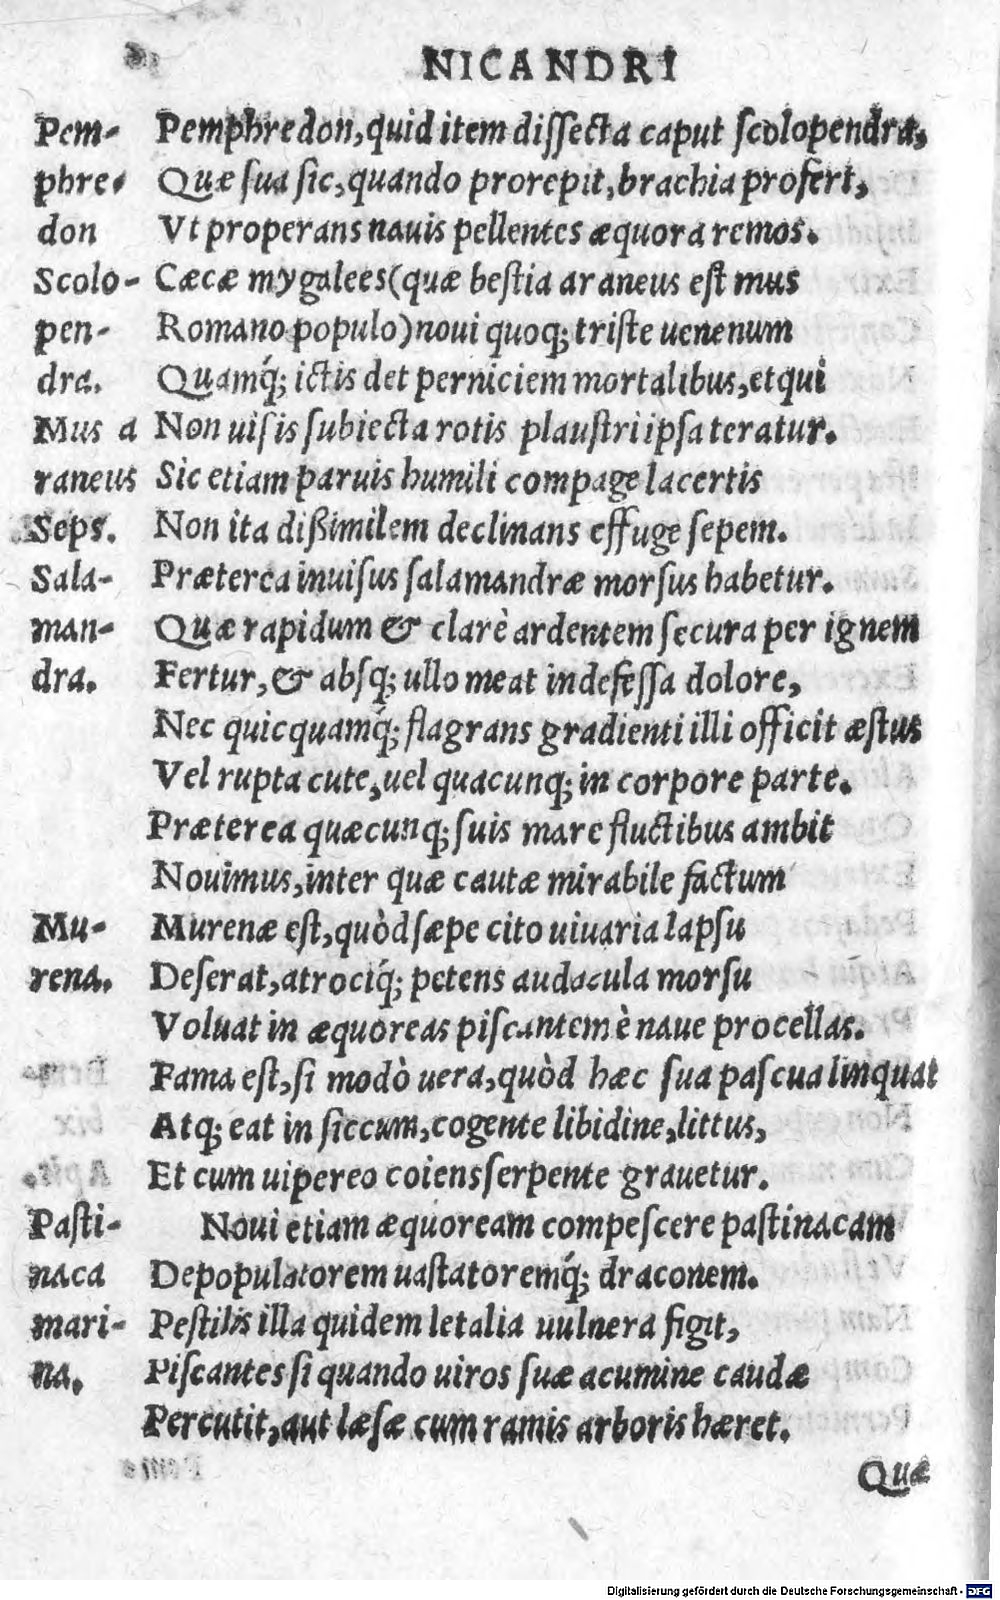 NICANDRI
Pem- Pemphredon, quid item dissecta caput scolopendra,
phre- Quæ sua sic, quando prorepit, brachia profert,
don Vt properans nauis pellentes æquora remos.
Scolo- Cæcæ mygalees (quæ bestia araneus est mus
pen- Romano populo) noui quoq; triste uenenum
dra. Quamq́; ictis det perniciem mortalibus, et qui
Mus a Non uisis subiecta rotis plaustri ipsa teratur.
raneus Sic etiam paruis humili compage lacertis
Seps. Non ita dißimilem declinans effuge sepem.
Sala- Præterea inuisus salamandræ morsus habetur.
man- Quæ rapidum & clarè ardentem secura per ignem
dra. Fertur, & absq; ullo meat indefessa dolore,
Nec quicquamq́; flagrans gradienti illi officit æstus
Vel rupta cute, uel quacunq; in corpore parte.
Præterea quæcunq; suis mare fluctibus ambit
Nouimus, inter quæ cautæ mirabile factum
Mu- Murenæ est, quòd sæpe cito uiuaria lapsu
rena. Deserat, atrociq́; petens audacula morsu
Voluat in æquoreas piscantem è naue procellas.
Fama est, si modò uera, quòd hæc sua pascua linquat
Atq; eat in siccum, cogente libidine, littus,
Et cum uipereo coiens serpente grauetur.
Pasti- Noui etiam æquoream compescere pastinacam
naca Depopulatorem uastatoremq́; draconem.
mari- Pestilis illa quidem letalia uulnera figit,
na. Piscantes si quando uiros suæ acumine caudæ
Percutit, aut læsæ cum ramis arboris hæret.
Quæ
Digitalisierung gefördert durch die Deutsche Forschungsgemeinschaft - DFG